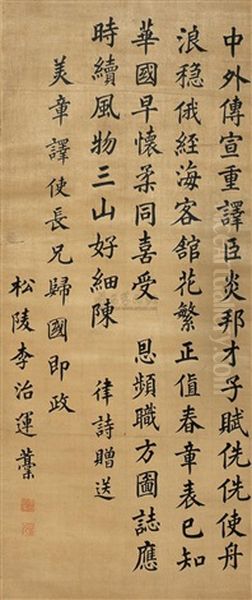 中外傳宣重譯臣炎邦才子賦侁侁使舟
浪穩俄經海客舘花繁正值春章表已知
華國早懷柔同喜受　恩頻職方圖誌應
時續風物三山好細陳　　律詩贈送
美章譯使長兄歸國即政
松陵李治運藳